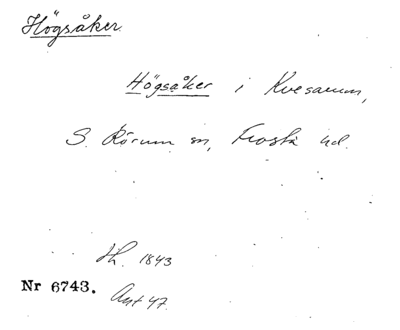 Högsåker.
Högsåker i Kvesarum,
S. Rörum sn, Frosta hd.
Jh. 1843
Nr 6743.
Ant 47.